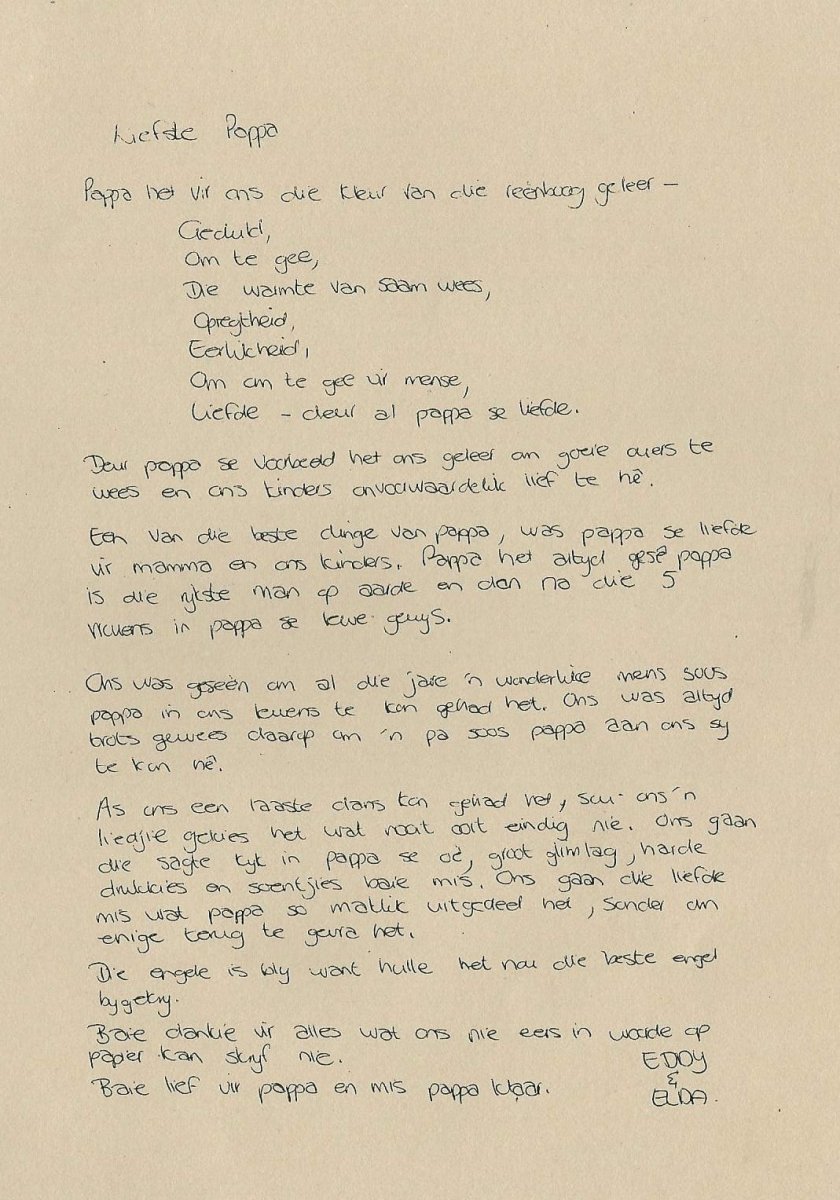 Liefste Pappa
Pappa het vir ons die kleur van die reënboog geleer –
Geduld,
Om te gee,
Die warmte van saam wees,
Opregtheid,
Eerlikheid,
Om om te gee vir mense,
Liefde – deur al pappa se liefde.
Deur pappa se voorbeeld het ons geleer om goeie ouers te
wees en ons kinders onvoorwaardelik lief te hê.
Een van die beste dinge van pappa, was pappa se liefde
vir mamma en ons kinders. Pappa het altyd gesê pappa
is die rykste man op aarde en dan na die 5
vrouens in pappa se lewe gewys.
Ons was geseën om al die jare 'n wonderlike mens soos
pappa in ons lewens te kon gehad het. Ons was altyd
trots gewees daarop om 'n pa soos pappa aan ons sy
te kon hê.
As ons een laaste dans kon gehad het, sou ons 'n
liedjie gekies het wat nooit ooit eindig nie. Ons gaan
die sagte kyk in pappa se oë, groot glimlag, harde
drukkies en soentjies baie mis. Ons gaan die liefde
mis wat pappa so maklik uitgedeel het, sonder om
enige terug te gevra het.
Die engele is bly want hulle het nou die beste engel
bygekry.
Baie dankie vir alles wat ons nie eers in woorde op
papier kan skryf nie.
EDDY
&
Baie lief vir pappa en mis pappa klaar.
ELDA.